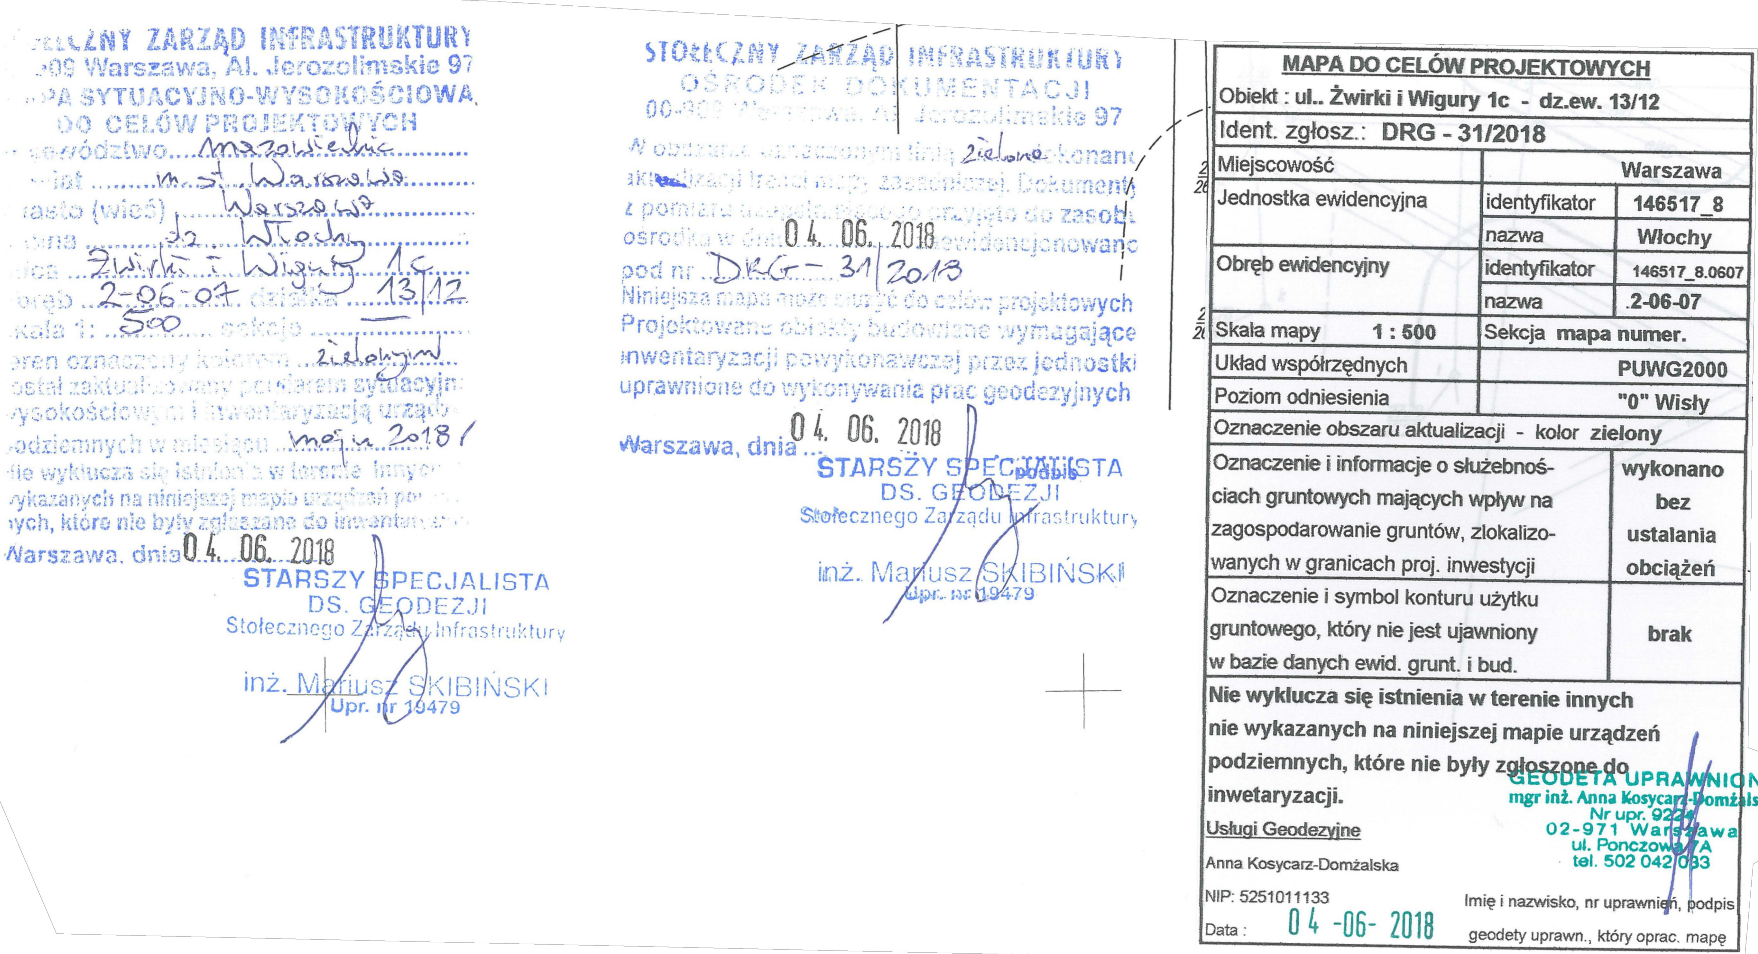 ZARZĄD INFRASTRUKTURY
Warszawa, Al. Jerozolimskie 97
SYTUACYJNO-WYSOKOŚCIOWA
DO CELÓW PROJEKTOWYCH
Mazowieckie
m. st. Warszawa
(wieś) Warszawa
dz. Włochy
Żwirki i Wigury 1c
2-06-07 działka 13/12
1: 500
oznaczony kolorem zielonym
maju 2018r
nie wyklucza się istnienia w terenie innych
wykazanych na niniejszej mapie urządzeń
które nie były zgłaszane do
Warszawa, dnia 04. 06. 2018
STARSZY SPECJALISTA
DS. GEODEZJI
Stołecznego Zarządu Infrastruktury
inż. Mariusz SKIBIŃSKI
Upr. nr 19479
STOŁECZNY ZARZĄD INFRASTRUKTURY
OŚRODEK DOKUMENTACJI
Warszawa, Al. Jerozolimskie 97
W obszarze oznaczonym linią zieloną
aktualizacji treści mapy zasadniczej. Dokument
z pomiaru przyjęto do
ośrodka w dniu 04. 06. 2018
pod nr DRG - 31/2018
Niniejsza mapa może służyć do celów projektowych
Projektowane obiekty budowlane wymagające
inwentaryzacji powykonawczej przez jednostki
uprawnione do wykonywania prac geodezyjnych
Warszawa, dnia 04. 06. 2018
podpis
STARSZY SPECJALISTA
DS. GEODEZJI
Stołecznego Zarządu Infrastruktury
inż. Mariusz SKIBIŃSKI
Upr. nr 19479
MAPA DO CELÓW PROJEKTOWYCH
Obiekt : ul.. Żwirki i Wigury 1c - dz.ew. 13/12
Ident. zgłosz.: DRG - 31/2018
Miejscowość Warszawa
Jednostka ewidencyjna identyfikator 146517_8
nazwa Włochy
Obręb ewidencyjny identyfikator 146517_8.0607
nazwa .2-06-07
Skala mapy 1 : 500 Sekcja mapa numer.
Układ współrzędnych PUWG2000
Poziom odniesienia "0" Wisły
Oznaczenie obszaru aktualizacji - kolor zielony
Oznaczenie i informacje o służebnoś- wykonano
ciach gruntowych mających wpływ na bez
zagospodarowanie gruntów, zlokalizo- ustalania
wanych w granicach proj. inwestycji obciążeń
Oznaczenie i symbol konturu użytku
gruntowego, który nie jest ujawniony brak
w bazie danych ewid. grunt. i bud.
Nie wyklucza się istnienia w terenie innych
nie wykazanych na niniejszej mapie urządzeń
podziemnych, które nie były zgłoszone do
inwetaryzacji.
GEODETA UPRAWNION
mgr inż. Anna Kosycarz-Domżals
Nr upr. 9224
02-971 Warszawa
ul. Ponczowa 7A
tel. 502 042 033
Usługi Geodezyjne
Anna Kosycarz-Domżalska
NIP: 5251011133
Data : 04 -06- 2018
Imię i nazwisko, nr uprawnień, podpis
geodety uprawn., który oprac. mapę